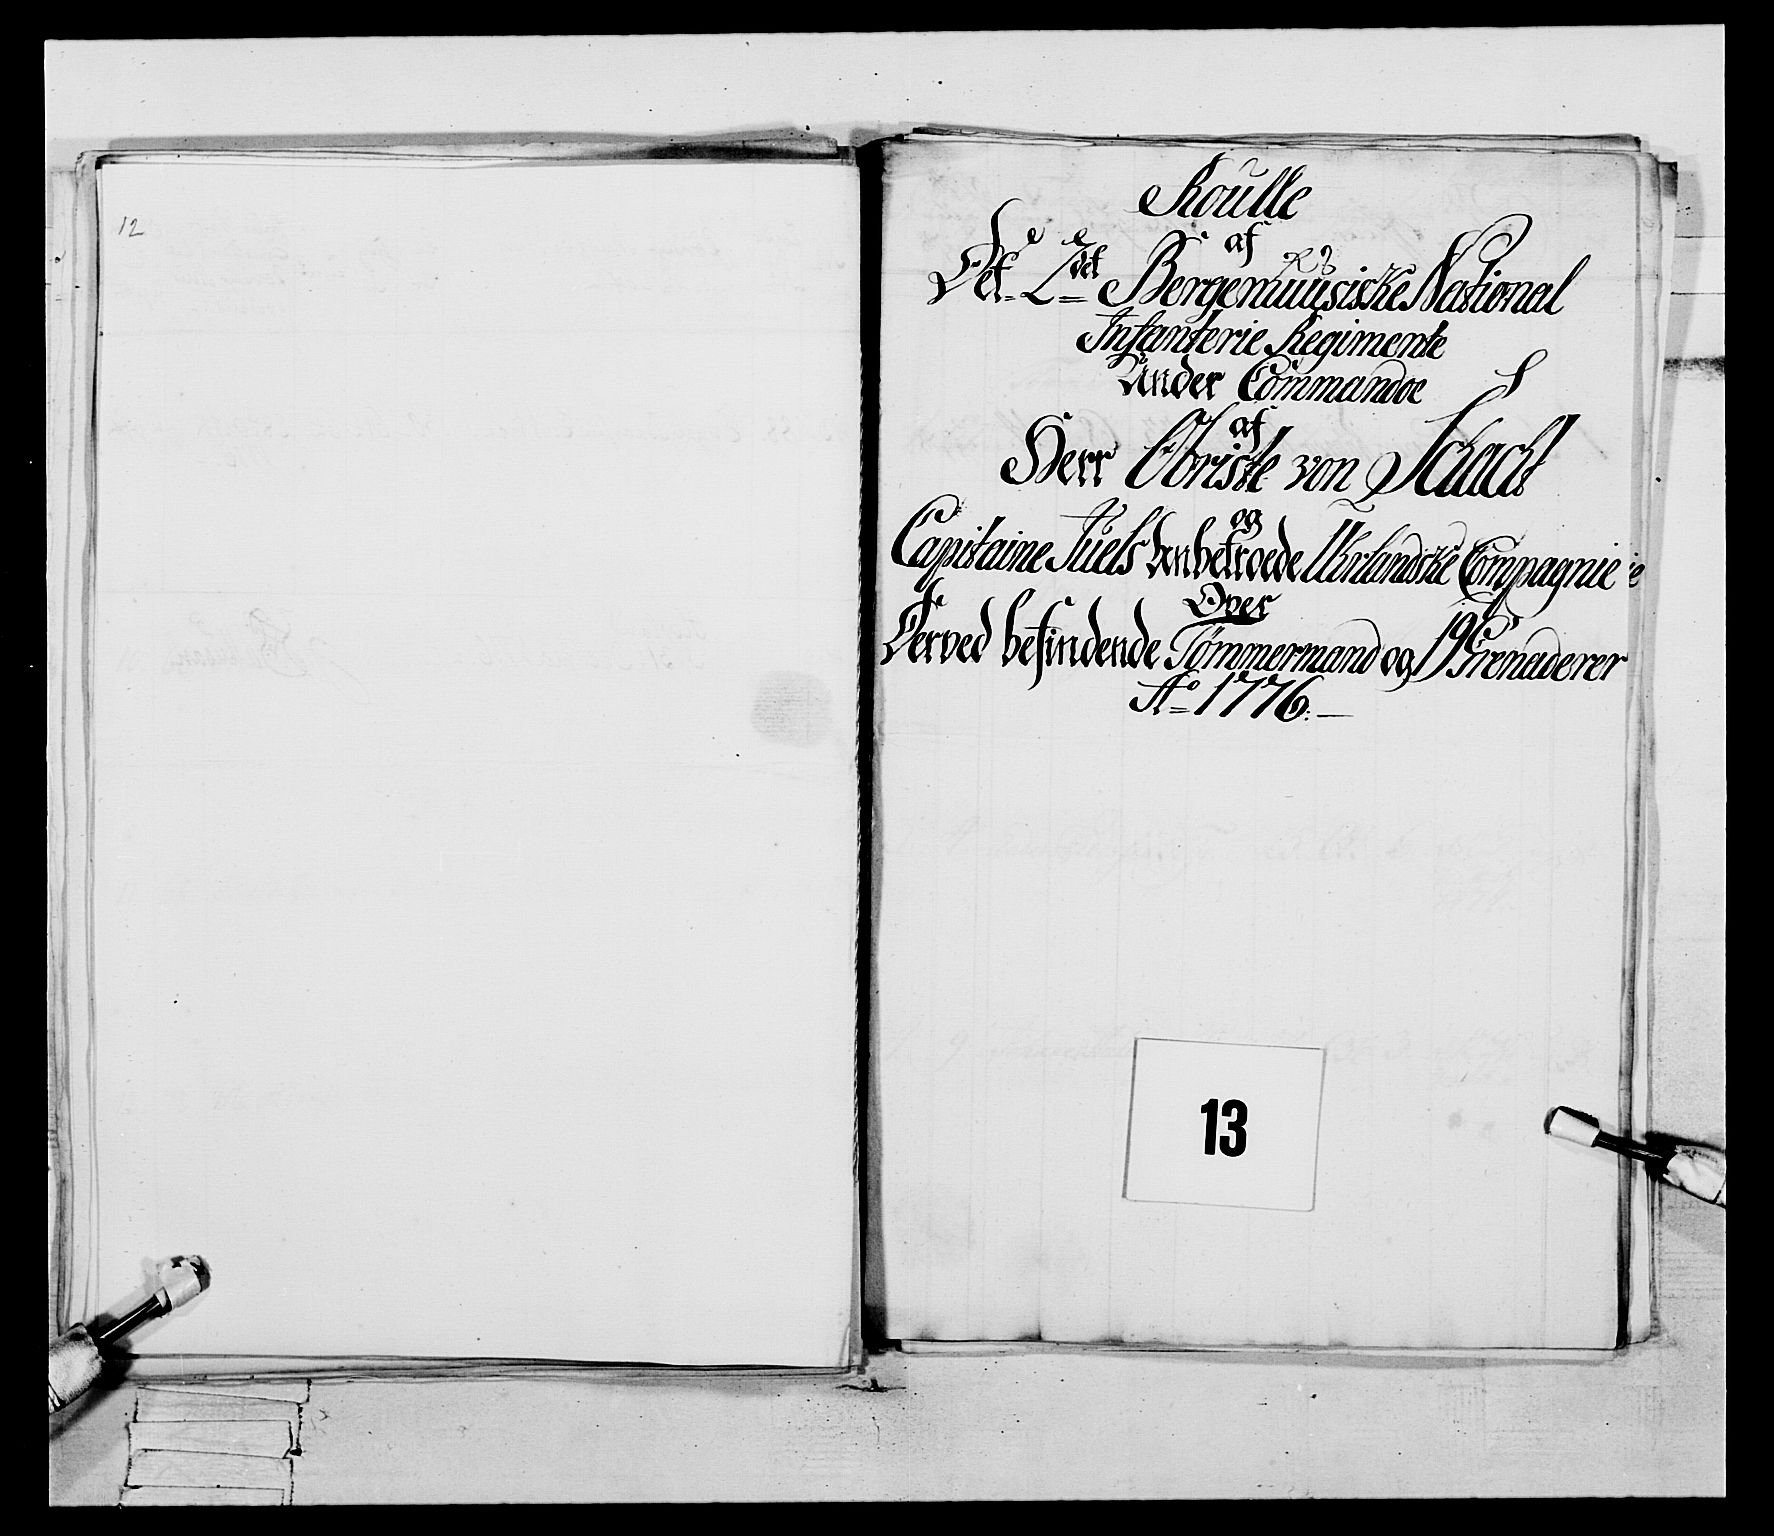 12
Roulle
af
Det 2det Bergenhuusiske National
Infanterie Regimente
Under Commandoe
af
Herr Obriste von Schach
og
Capitaine Juels Anbetroede Uhrlandske Compagnie
Over
Derved befindende Tømmermand og 19 Grenaderer
Ao 1776.
13